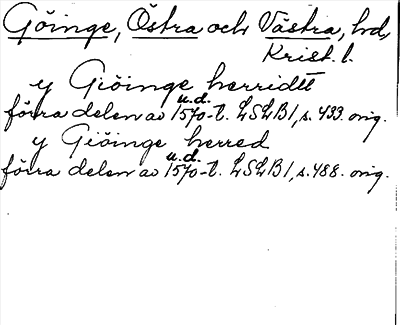 Göinge, Östra och Västra, hd,
Krist. l.
y Giöinge herridtt
u.d.
förra delen av 1570-t. LSLB1, s. 433. orig.
y Giöinge herred
u.d.
förra delen av 1570-t. LSLB1, s. 488. orig.